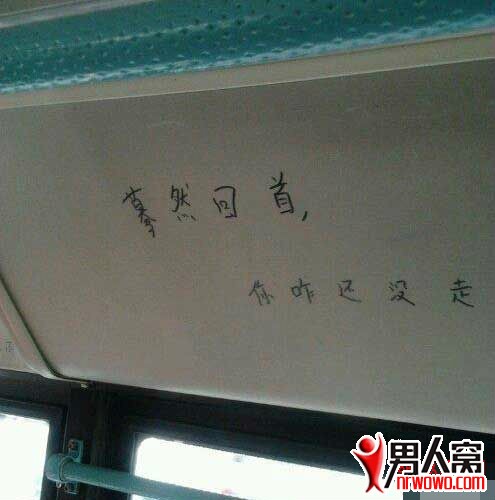 蓦然回首，
你咋还没走
男人窝
nrwowo.com